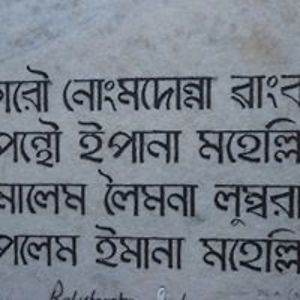 নোংমদোন্না ৱাংব
পন্থৌ ইপানা মহেল্লি
মালেম লৈমনা লুম্বরা
পলেম ইমানা মহেল্লি